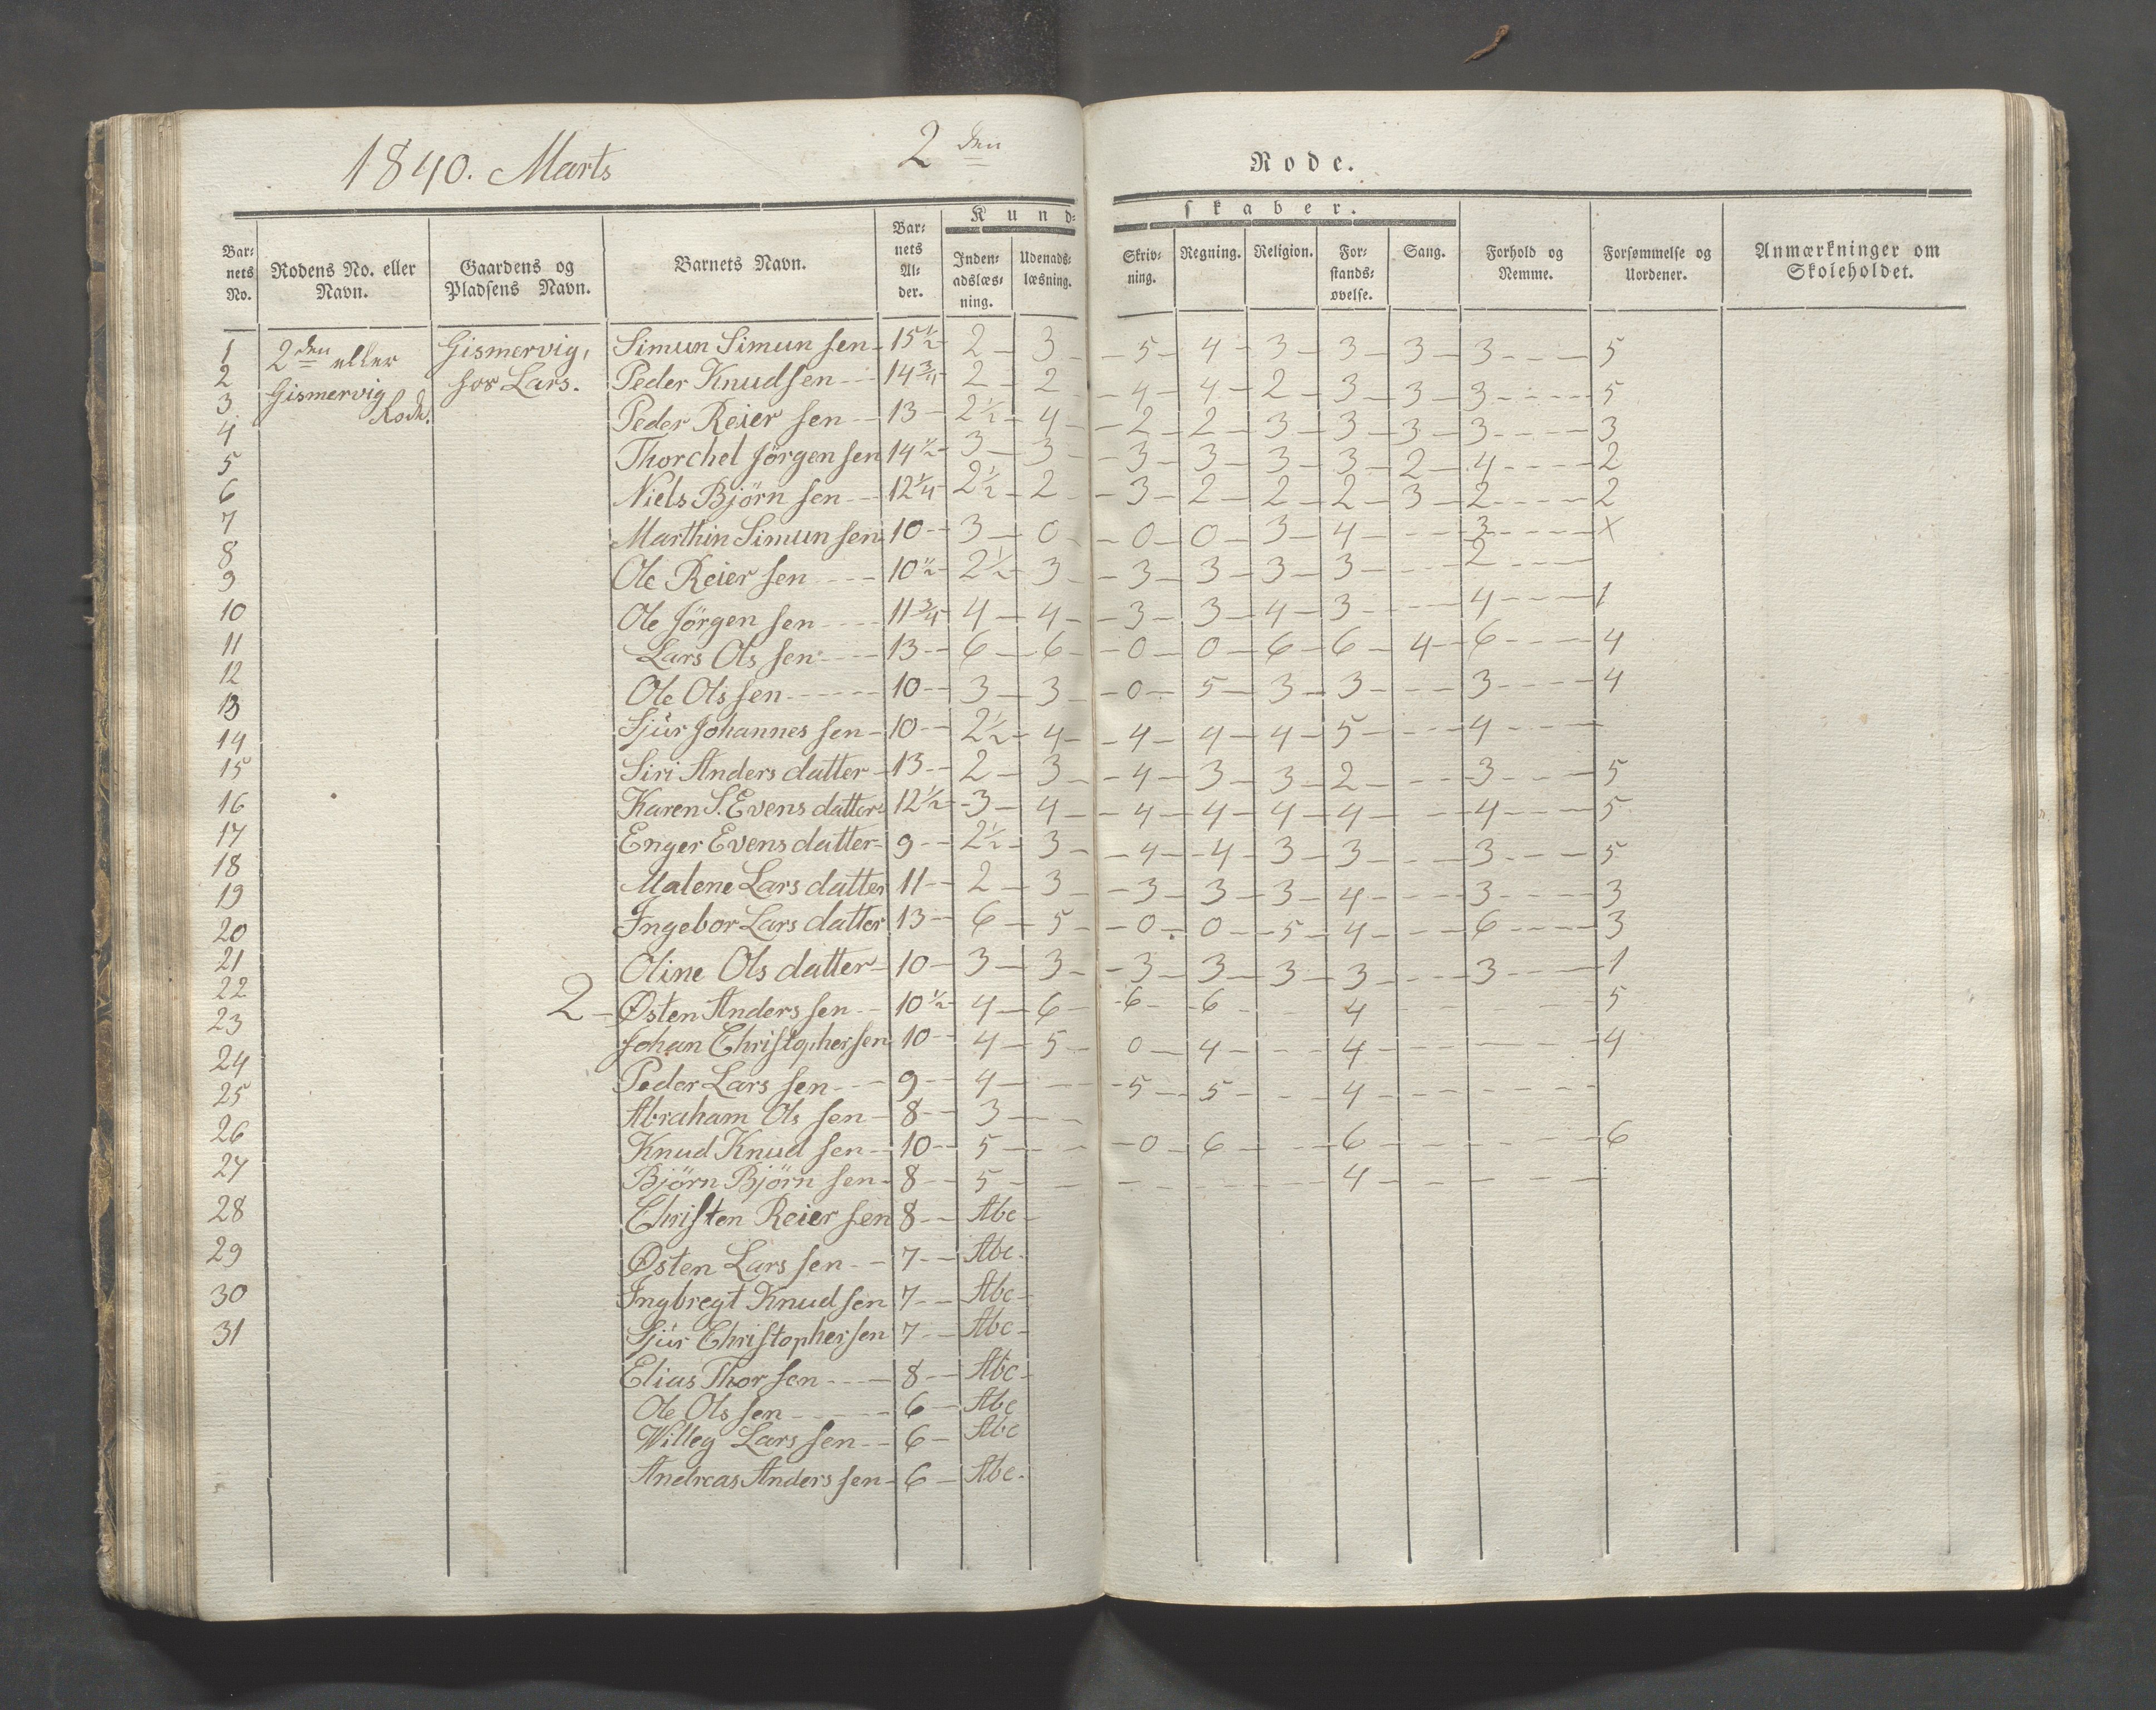 1840. Marts 2den Rode.
Kundskaber.
Barnets No. Rodens No. eller Navn. Gaardens og Pladsens Navn. Barnets Navn. Barnets Alder. Indenadslæsning. Udenadslæsning. Skrivning. Regning. Religion. Forstandsøvelse. Sang. Forhold og Nemme. Forsømmelse og Uordener. Anmærkninger om Skoleholdet.
1 2den eller Gismervig, Simun Simunsen 15½ 2 3 5 4 3 3 3 3 5
2 Gismervig hos Lars. Peder Knudsen 14¾ 2 2 4 4 2 3 3 3 5
3 Rode. Peder Reiersen 13 2½ 4 2 2 3 3 3 3 3
4 Thorchel Jörgensen 14½ 3 3 3 3 3 3 2 4 2
5 Niels Björnsen 12¼ 2½ 2 3 2 2 2 3 2 2
6 Marthin Simunsen 10 3 0 0 0 3 4 3 x
7 Ole Reiersen 10½ 2½ 3 3 3 3 3 2
8 Ole Jörgensen 11¾ 4 4 3 3 4 3 4 1
9 Lars Olssen 13 6 6 0 0 6 6 4 6 4
10 Ole Olssen 10 3 3 0 5 3 3 3 4
11 Sjür Johannessen 10 2½ 4 4 4 4 5 4
12 Siri Andersdatter 13 2 3 4 3 3 2 3 5
13 Karen S. Evensdatter 12½ 3 4 4 4 4 4 4 5
14 Enger Evensdatter 9 2½ 3 4 4 3 3 3 5
15 Malene Larsdatter 11 2 3 3 3 3 4 3 3
16 Ingebor Larsdatter 13 6 5 0 0 5 4 6 3
17 Oline Olsdatter 10 3 3 3 3 3 3 3 1
18 2 Østen Anderssen 10½ 4 6 6 6 4 5
19 Johan Christophersen 10 4 5 0 4 4 4
20 Peder Larssen 9 4 5 5 4
21 Abraham Olssen 8 3
22 Knud Knudsen 10 5 0 6 6 6
23 Björn Björnsen 8 5 4
24 Christen Reiersen 8 Abc
25 Østen Larssen 7 Abc.
26 Ingbregt Knudsen 7 Abc
27 Sjür Christophersen 7 Abc
28 Elias Thorsen 8 Abc
29 Ole Olssen 6 Abc
30 Willeg Larssen 6 Abc
31 Andreas Anderssen 6 Abc.